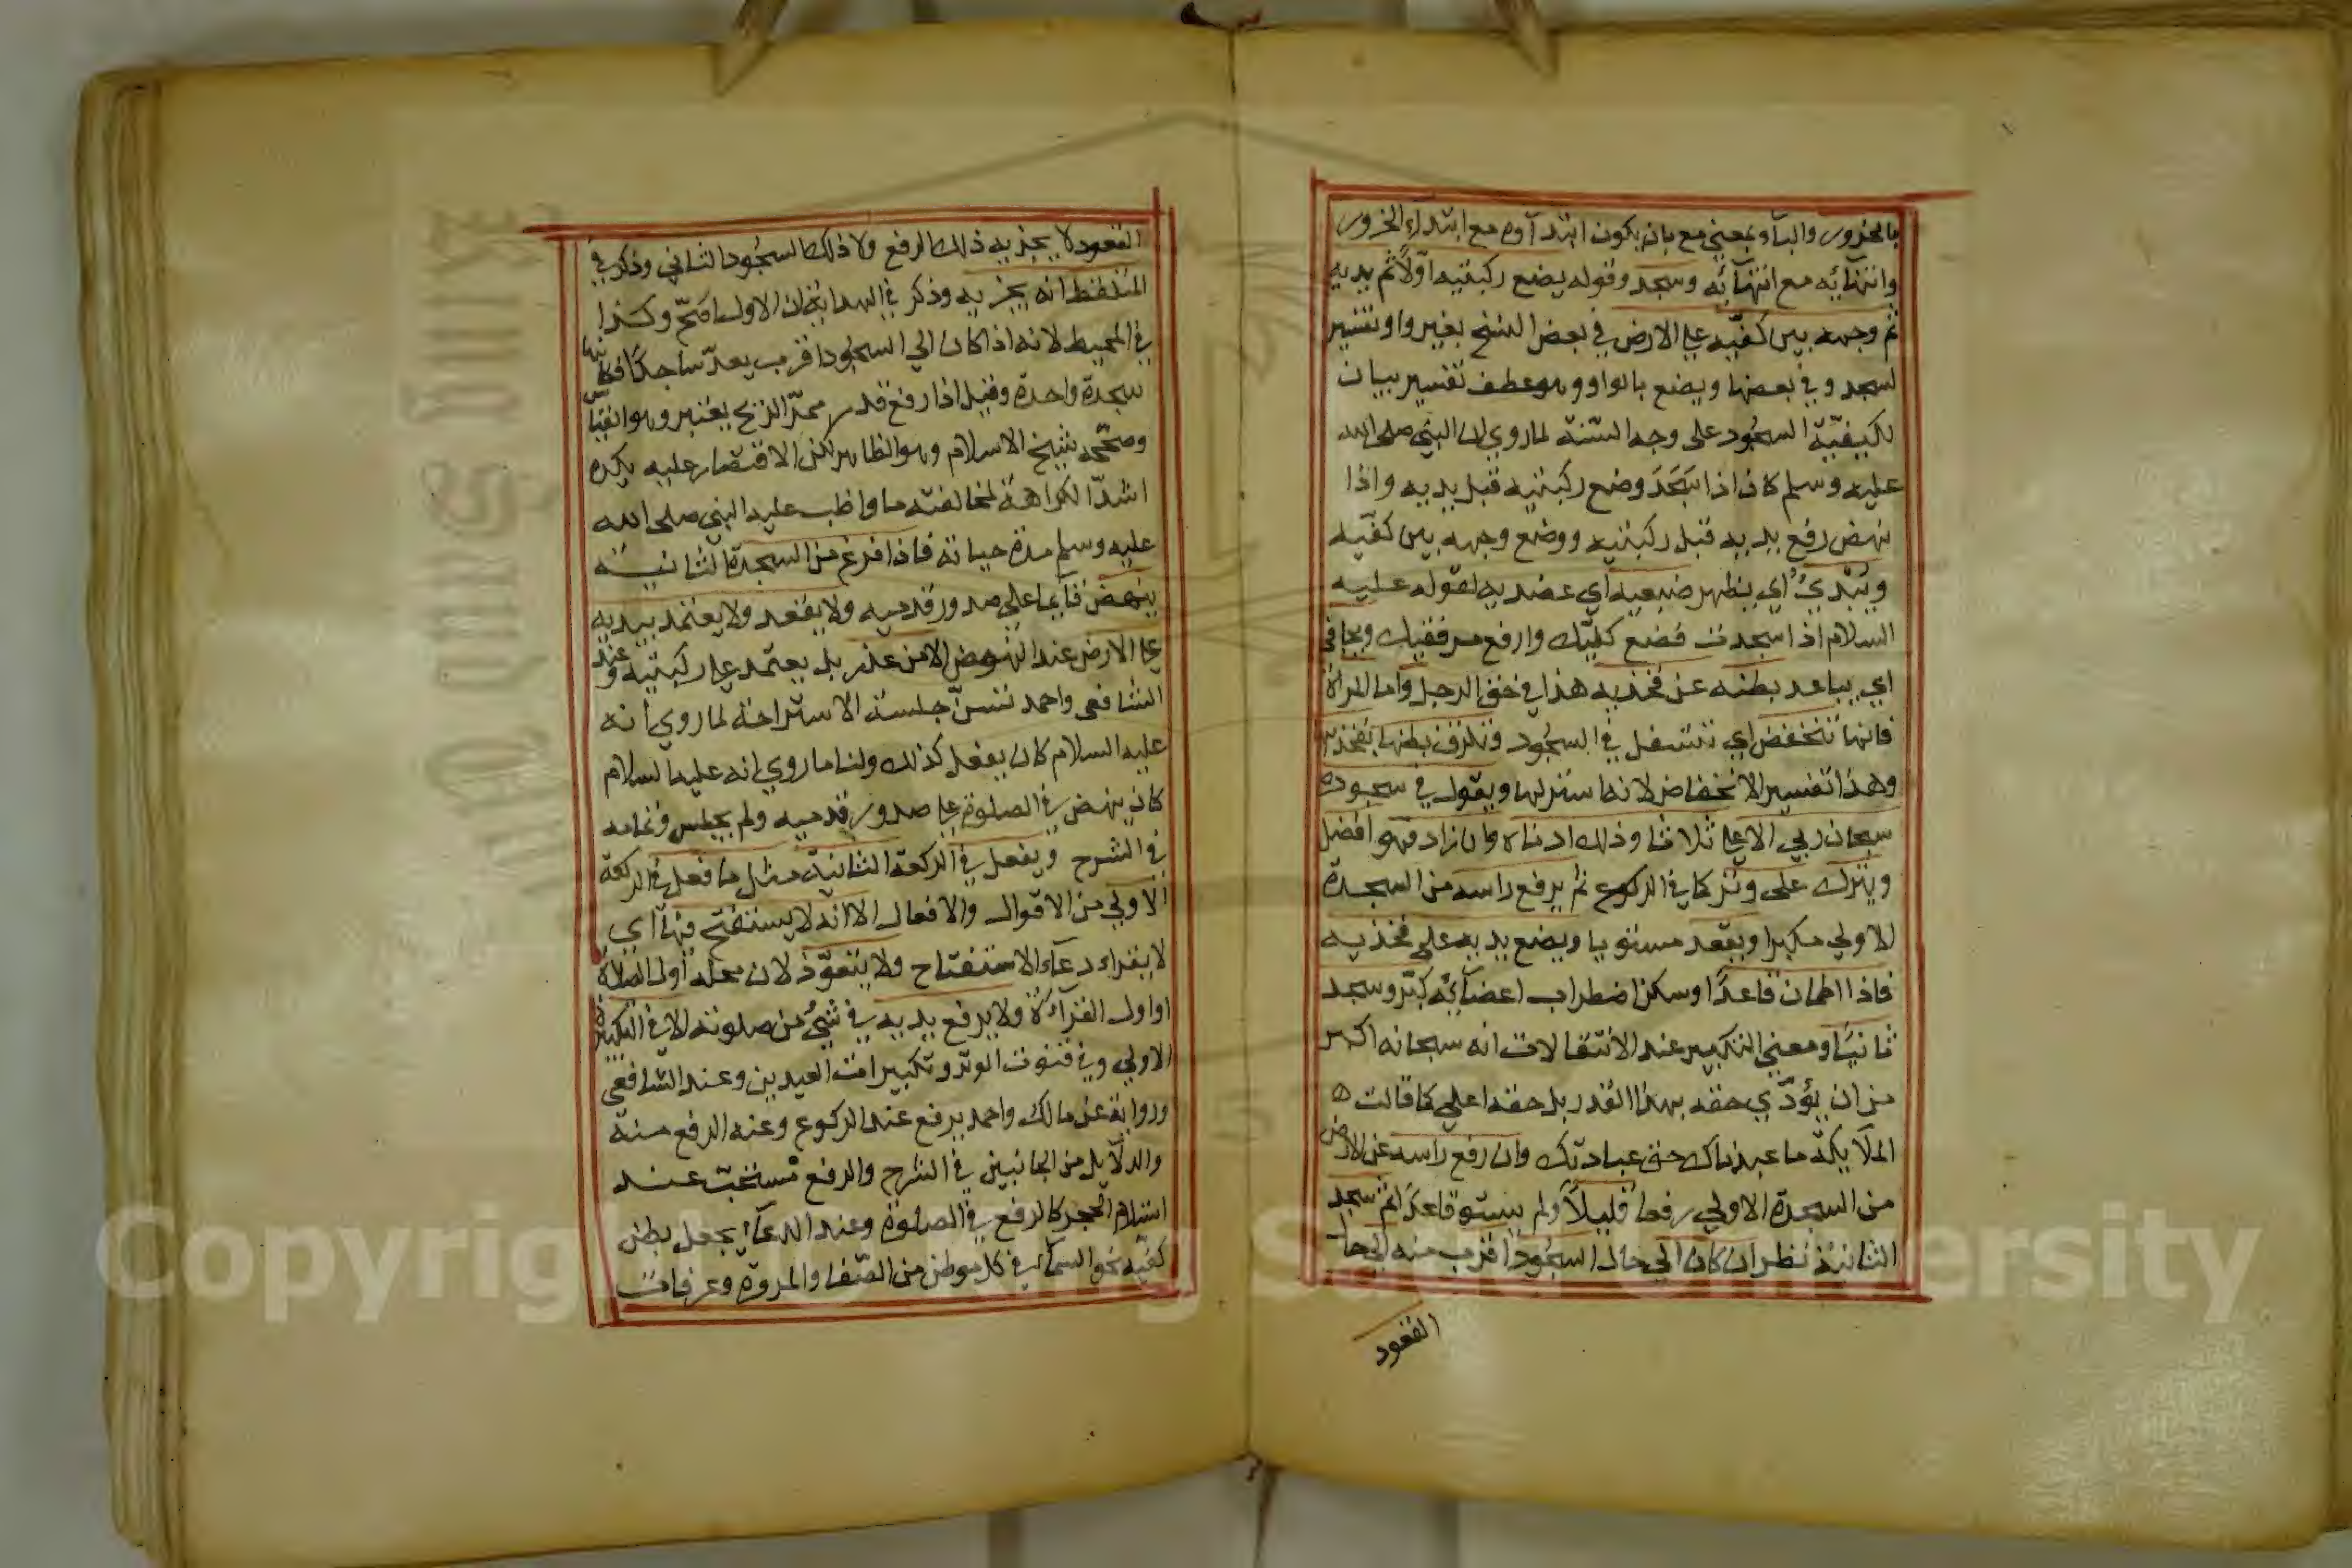 بالخرور والباء بمعني مع بان يكون ابتداوه مع ابتداء الخرور
وانتهائه مع انتهائه وسجد وقوله يضع ركبتيه اولا ثم يديه
ثم وجهه بين كفيه علي الارض في بعض النسخ بغير واو تفسير
لسجد وفي بعضها ويضع بالواو وهو عطف تفسير بيان
لكيفية السجود على وجه السنة لما روي ان النبي صلى الله
عليه وسلم كان اذا سَجَدَ وضع ركبتيه قبل يديه واذا
نهض رفع يديه قبل ركبتيه ووضع وجهه بين كفيه
ويُبْدِيُ اي يظهر ضبعيه اي عضديه لقوله عليه
السلام اذا سجدت فضع كفيك وارفع مرفقيك ويجافي
اي يباعد بطنه عن فخذيه هذا في حق الرجل واما المراة
فانها تنخفض اي تتسفل في السجود وتلزق بطنها بفخذيها
وهذا تفسير الانخفاض لانه استر لها ويقول في سجوده
سبحان ربي الاعلي ثلاثا وذلك ادناه وان زاد فهو افضل
ويترك على وتر كما في الركوع ثم يرفع راسه من السجدة
الاولي مكبرا ويقعد مستويا ويضع يديه على فخذيه
فاذا اطمان قاعدًا وسكن اضطراب اعضائه كبّر وسجد
ثانيًا ومعني التكبير عند الانتقالات انه سبحانه اكبر
من ان يؤدّي حقه بهذا القدر بل حقه اعلي كما قالت
الملآيكة ما عبدناك حق عبادتك وان رفع راسه عن الارض
من السجدة الاولي رفعا قليلاً ولم يستو قاعدًا ثم سجد
الثانية نظر ان كان الي حال السجود اقرب منه الي حال
القعود
القعود لا يجزيه ذلك الرفع ولا ذلك السجود الثاني وذكر في
الملتقط انه يجزيه وذكر في الهداية ان الاول اصحّ وكذا
في المحيط لانه اذا كان الي السجود اقرب يعدّ ساجدًا فكانها
سجدة واحدة وقيل اذا رفع قدر ممرّ الريح يعتبر وهو القياس
وصحّحه شيخ الاسلام وهو الظاهر لكن الاقتصار عليه يكره
اشدّ الكراهة لمخالفته ما واظب عليه النبي صلى الله
عليه وسلم مدة حياته فاذا فرغ من السجدة الثانية
ينهض قآيما علي صدور قدميه ولا يقعد ولا يعتمد بيديه
علي الارض عند النهوض الا من عذر بل يعتمد علي ركبتيه وعند
الشافعي واحمد تسنّ جلسة الاستراحة لما روي انه
عليه السلام كان يفعل كذلك ولنا ما روي انه عليه السلام
كان ينهض في الصلوة علي صدور قدميه ولم يجلس وتمامه
في الشرح ويفعل في الركعة الثانية مثل ما فعل في الركعة
الاولي من الاقوال والافعال الا انه لا يستفتح فيها اي
لا يقراء دعآء الاستفتاح ولا يتعوّذ لان محله اول الصلاة
او اول القرآءة ولا يرفع يديه في شيُ من صلوته الا في التكبيرة
الاولي وفي قنوت الوتر وتكبيرات العيدين وعند الشافعي
ورواية عن مالك واحمد يرفع عند الركوع وعند الرفع منه
والدلآيل من الجانبين في الشرح والرفع مستحبّ عند
استلام الحجر كالرفع في الصلوة وعند الدعآء يجعل بطن
كفيه نحو السمآء في كل موطن من الصّفا والمروة وعرفات
Copyright © King Saud University